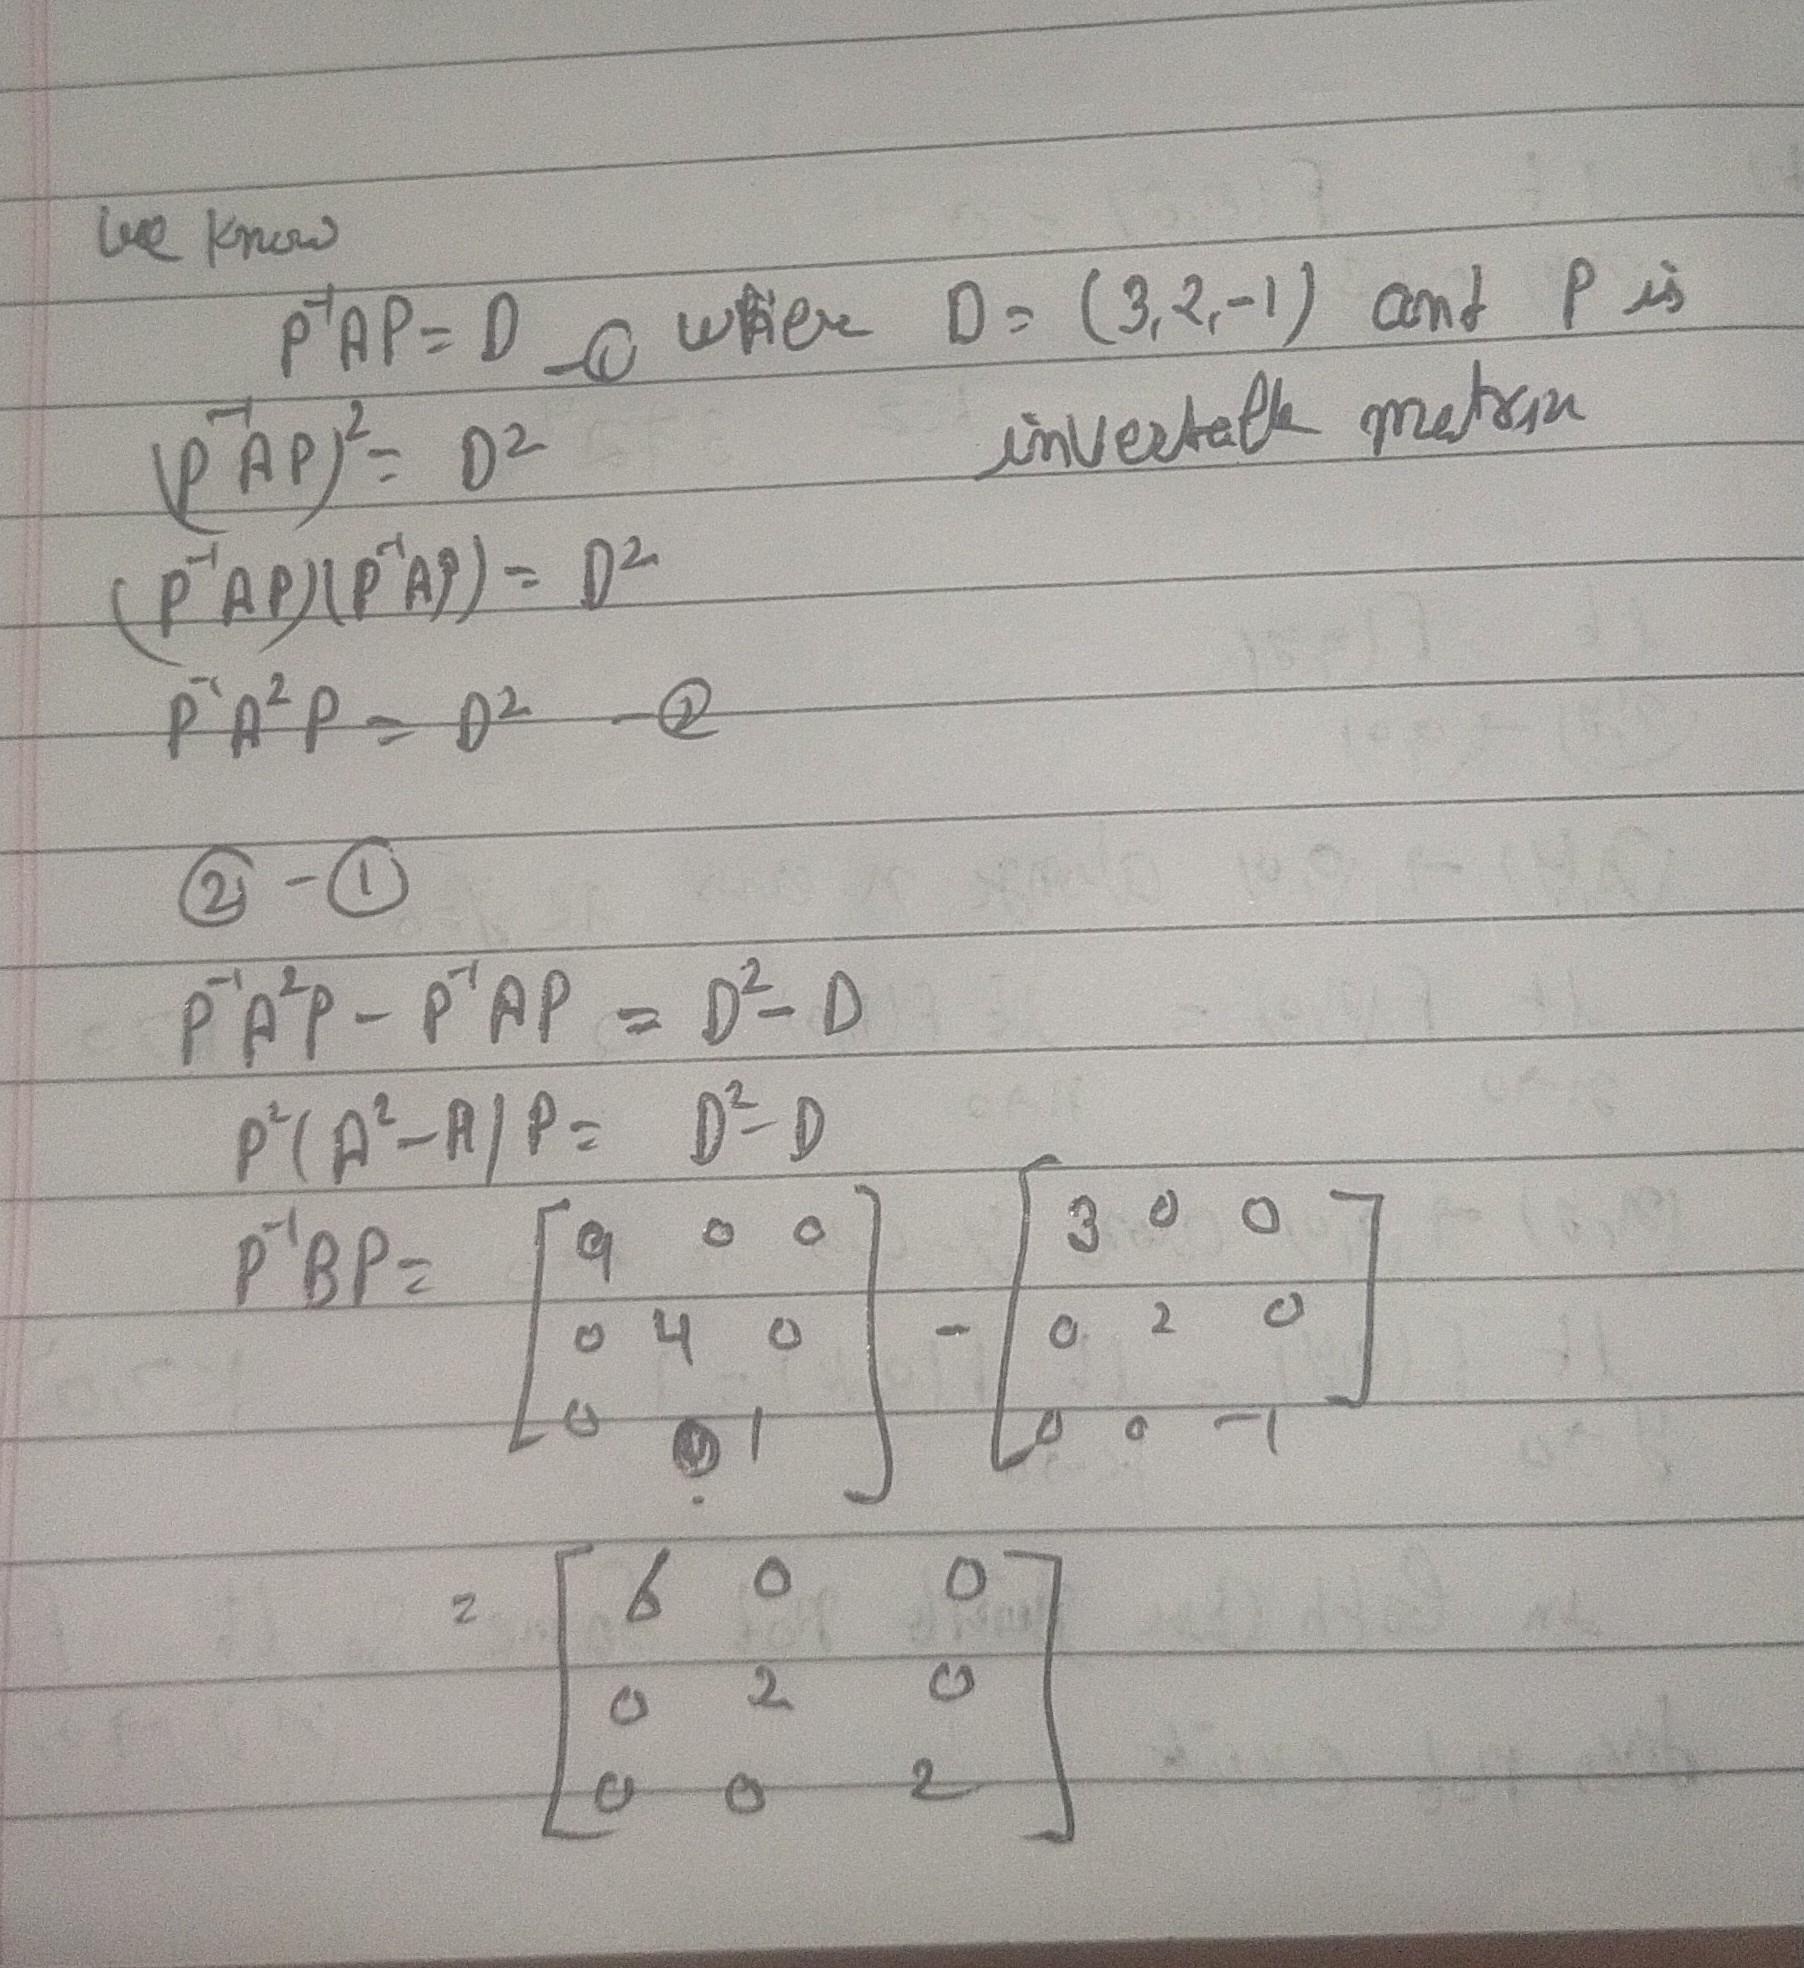 We know
P⁻¹AP = D —① where D = (3, 2, -1) and P is
invertable matrix
(P⁻¹AP)² = D²
(P⁻¹AP)(P⁻¹AP) = D²
P⁻¹A²P = D² —②
② - ①
P⁻¹A²P - P⁻¹AP = D² - D
P⁻¹(A² - A)P = D² - D
P⁻¹BP = [9 0 0; 0 4 0; 0 0 1] - [3 0 0; 0 2 0; 0 0 -1]
= [6 0 0; 0 2 0; 0 0 2]